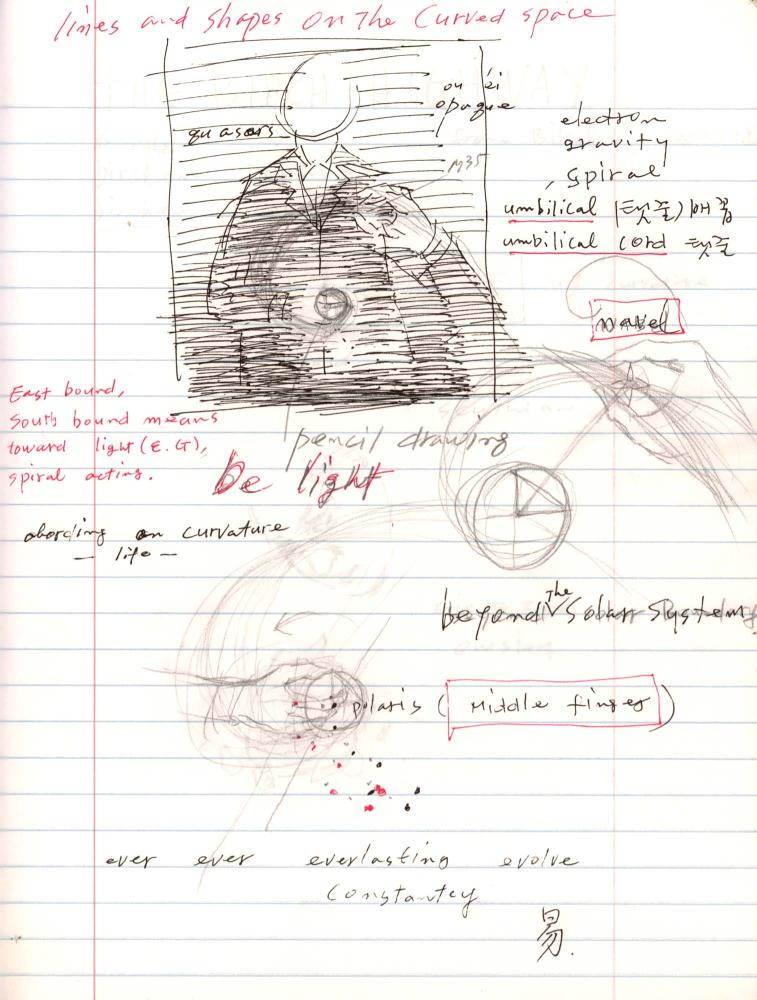 lines and shapes on the curved space
opaque
quasars
M35
electron
gravity
, spiral
umbilical (탯줄) 배꼽
umbilical cord 탯줄
navel
East bound,
South bound means
toward light (E.G),
spiral acting.
pencil drawing
be light
curvature
- life -
beyond The Solar System
polaris (Middle finger)
ever ever everlasting evolve
constantey
易.